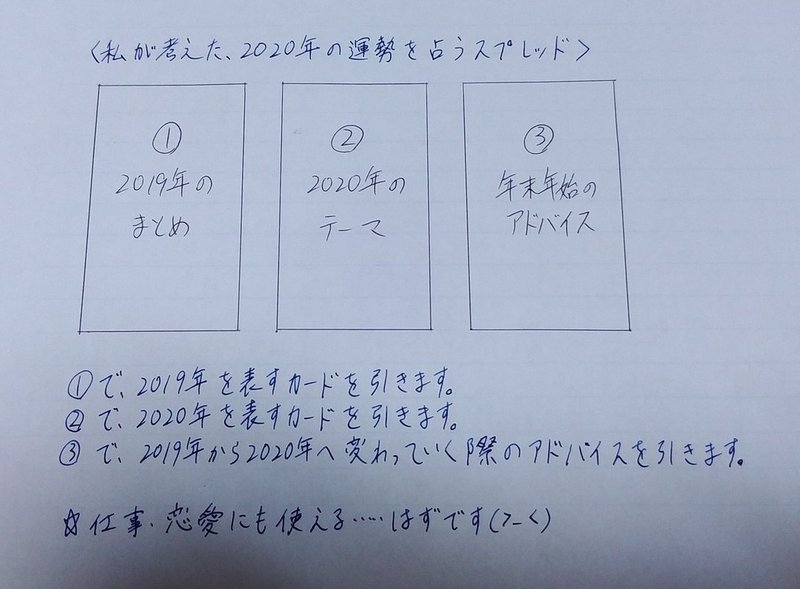 〈私が考えた、2020年の運勢を占うスプレッド〉
①
2019年の
まとめ
②
2020年の
テーマ
③
年末年始の
アドバイス
①で、2019年を表すカードを引きます。
②で、2020年を表すカードを引きます。
③で、2019年から2020年へ変わっていく際のアドバイスを引きます。
☆仕事、恋愛にも使える……はずです(>_<)